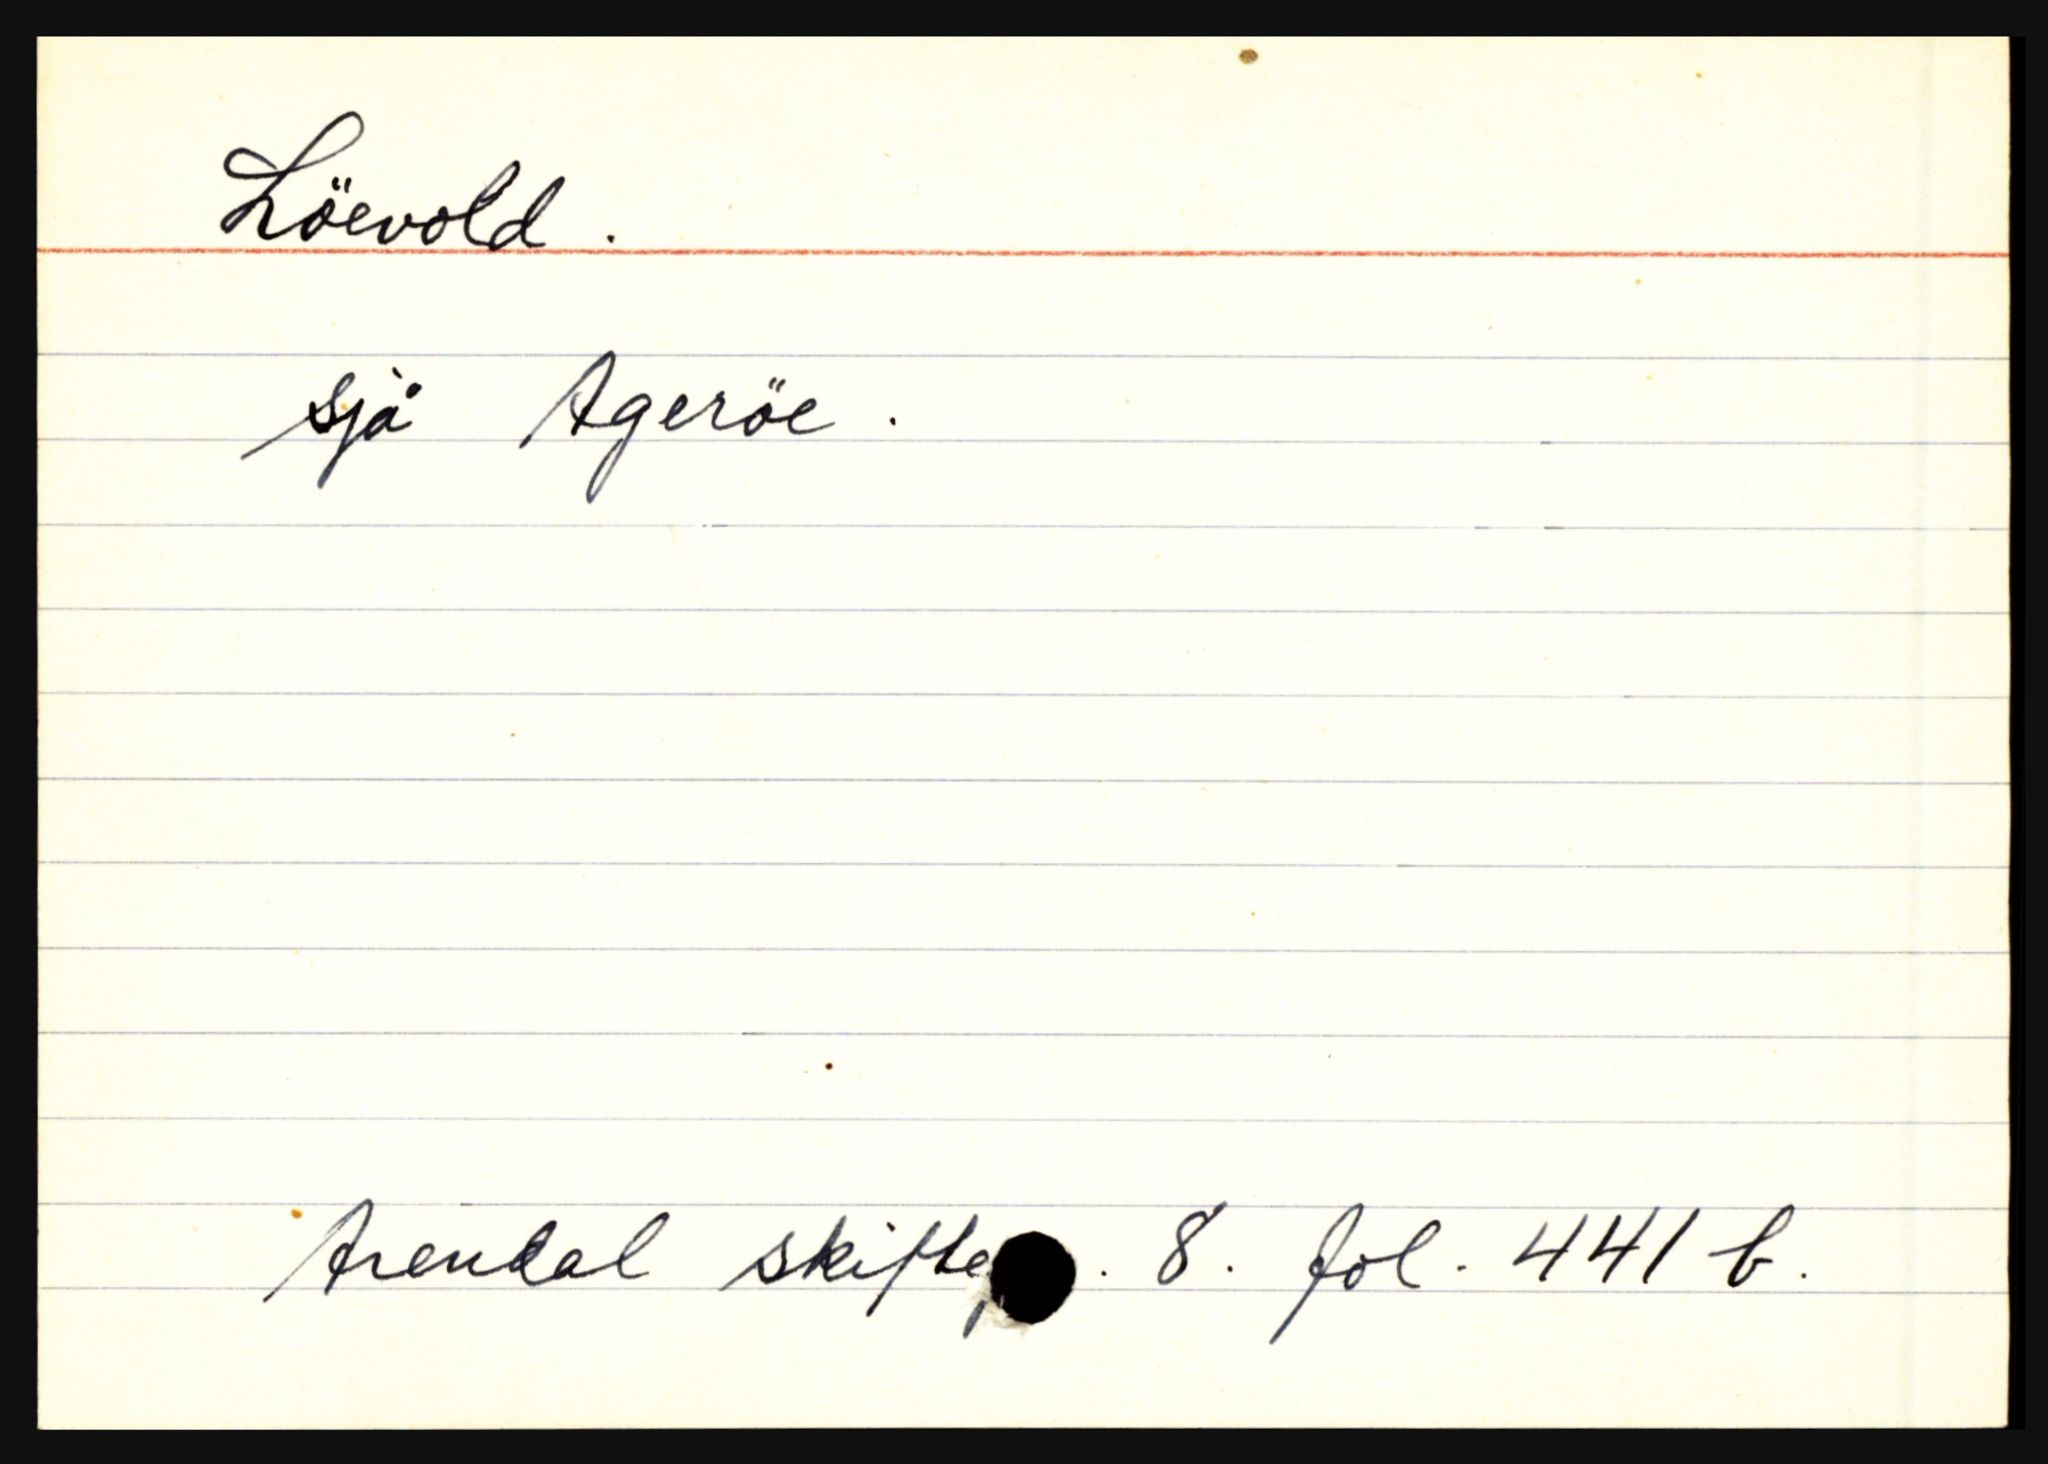 Löevold.
sjå Ageröe.
Arendal skifte . 8. fol. 441 b.